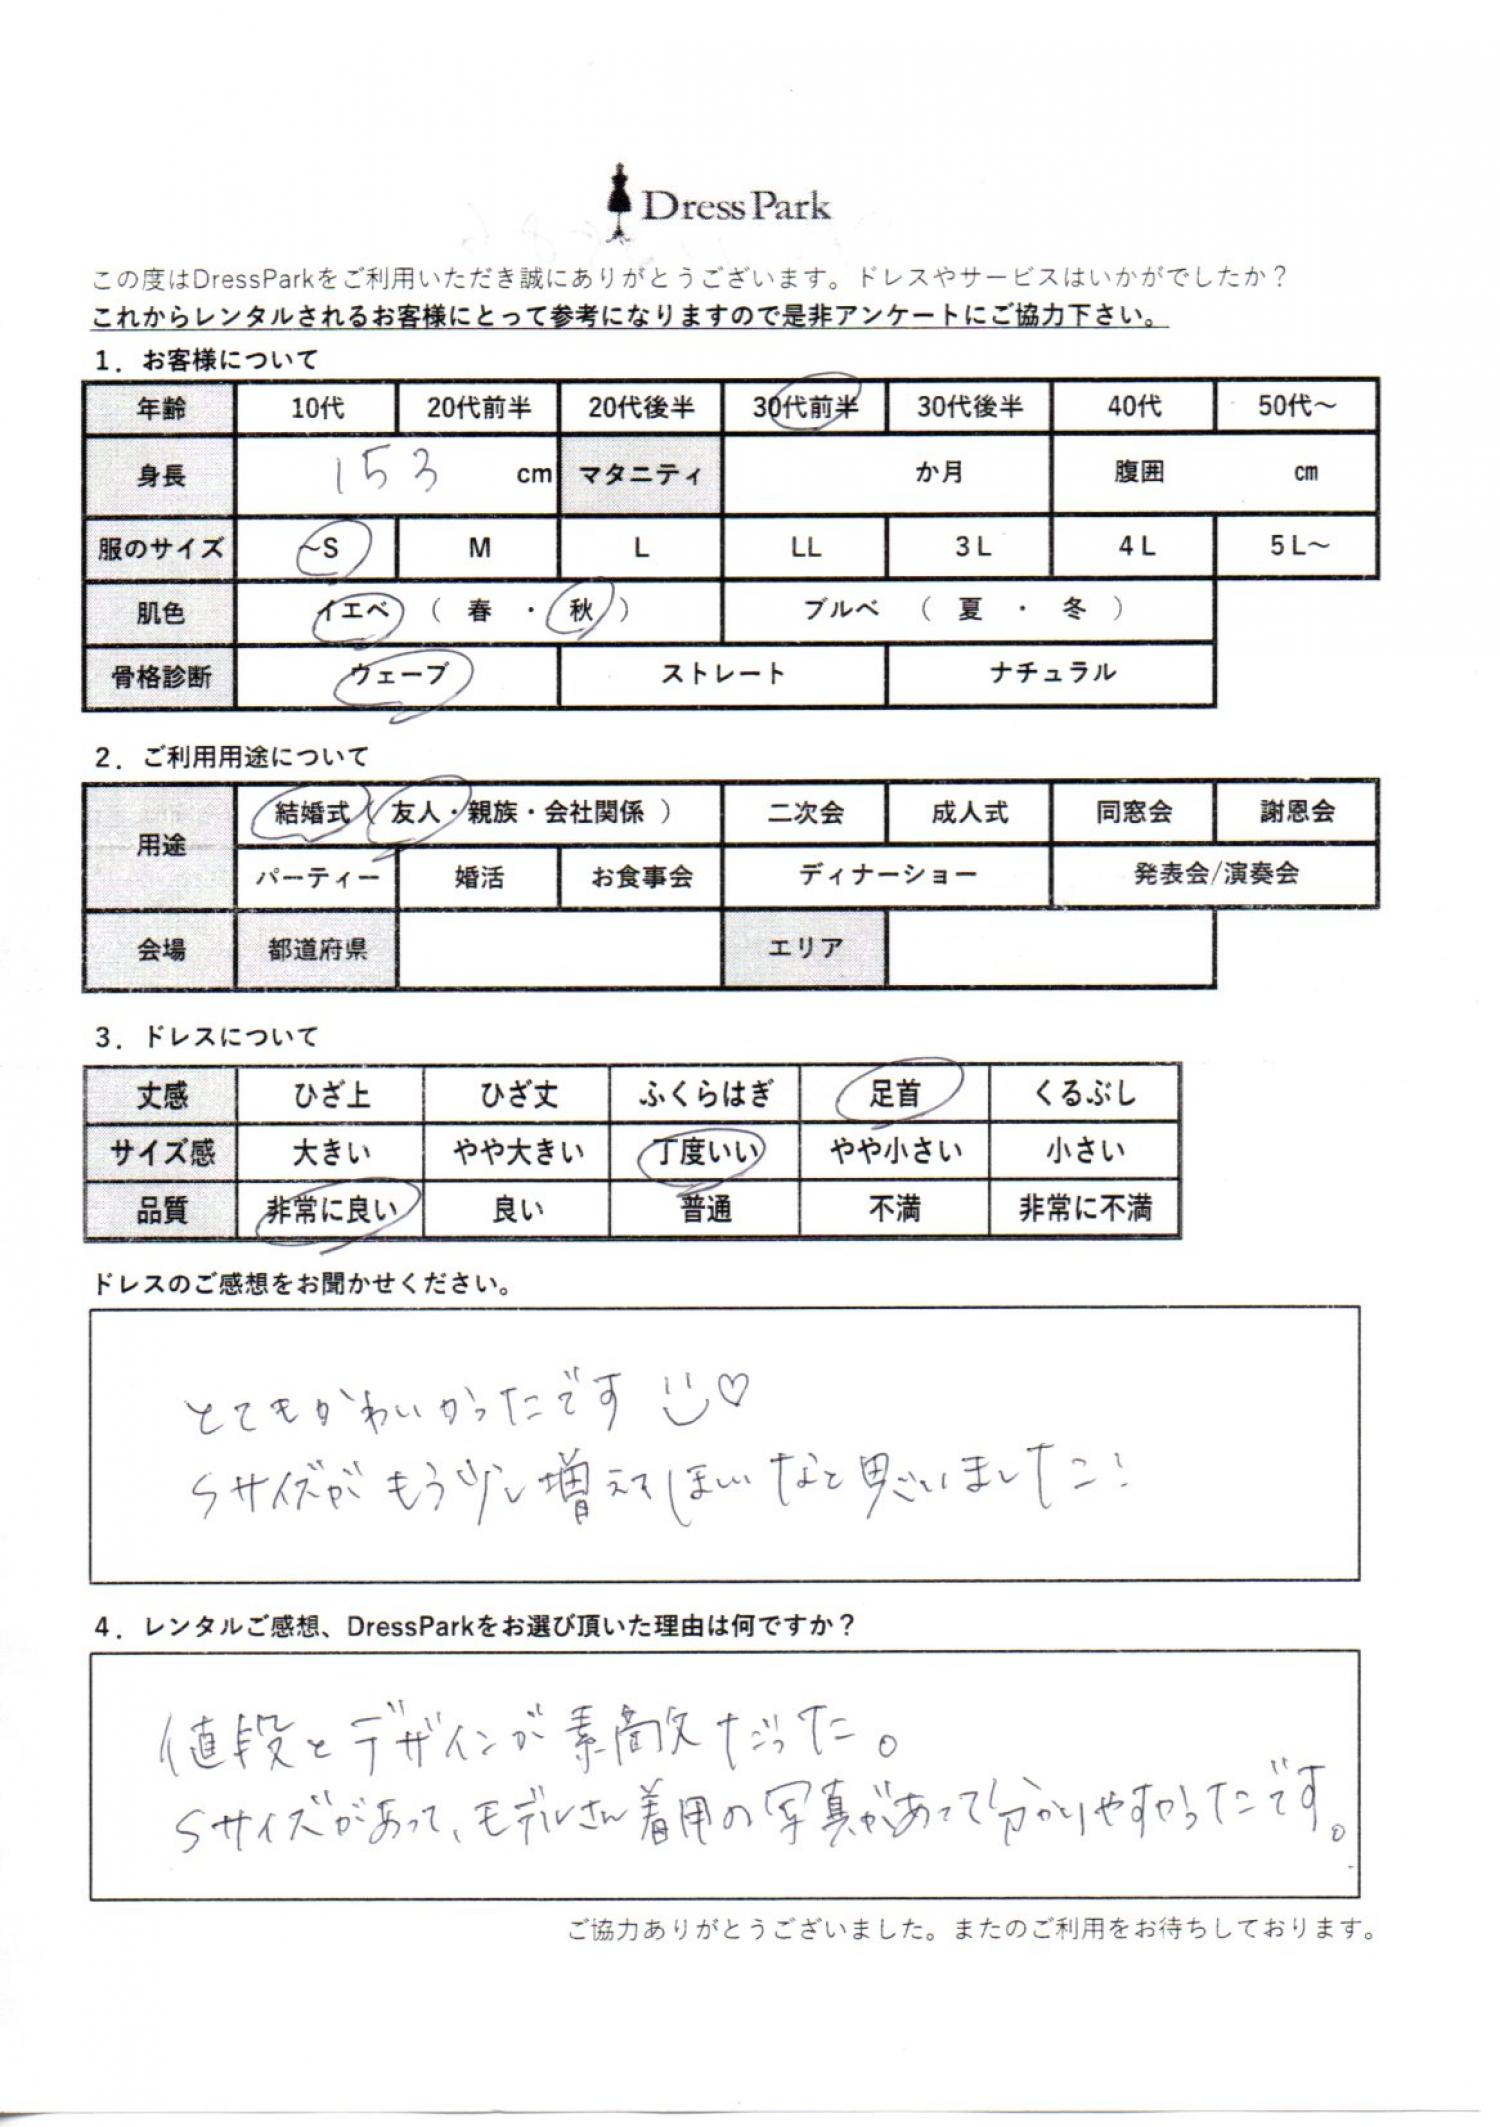 DressPark
この度はDressParkをご利用いただき誠にありがとうございます。ドレスやサービスはいかがでしたか？
これからレンタルされるお客様にとって参考になりますので是非アンケートにご協力下さい。
1．お客様について
年齢 10代 20代前半 20代後半 30代前半 30代後半 40代 50代～
身長 153 cm マタニティ か月 腹囲 cm
服のサイズ ～S M L LL 3L 4L 5L～
肌色 イエベ （ 春 ・ 秋 ） ブルベ （ 夏 ・ 冬 ）
骨格診断 ウェーブ ストレート ナチュラル
2．ご利用用途について
用途 結婚式（ 友人・親族・会社関係 ） 二次会 成人式 同窓会 謝恩会
パーティー 婚活 お食事会 ディナーショー 発表会/演奏会
会場 都道府県 エリア
3．ドレスについて
丈感 ひざ上 ひざ丈 ふくらはぎ 足首 くるぶし
サイズ感 大きい やや大きい 丁度いい やや小さい 小さい
品質 非常に良い 良い 普通 不満 非常に不満
ドレスのご感想をお聞かせください。
とてもかわいかったです♡
Sサイズがもう少し増えてほしいなと思いました！
4．レンタルご感想、DressParkをお選び頂いた理由は何ですか？
値段とデザインが素敵だった。
Sサイズがあって、モデルさん着用の写真があって分かりやすかったです。
ご協力ありがとうございました。またのご利用をお待ちしております。